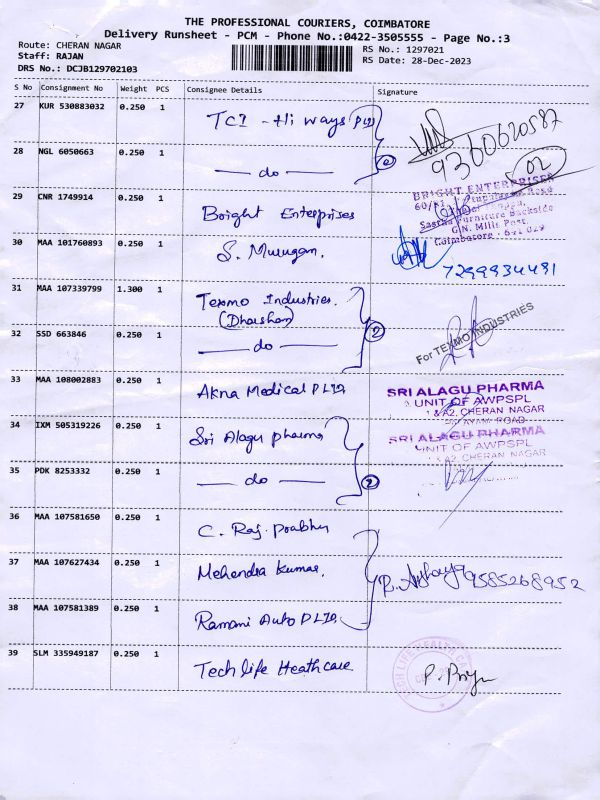 THE PROFESSIONAL COURIERS, COIMBATORE
Delivery Runsheet - PCM - Phone No.:0422-3505555 - Page No.:3
Route: CHERAN NAGAR
RS No.: 1297021
Staff: RAJAN
RS Date: 28-Dec-2023
DRS No.: DCJB129702103
S No Consignment No Weight PCS Consignee Details Signature
27 KUR 530883032 0.250 1 TCI - Hi ways PLTD
9360620587
28 NGL 6050663 0.250 1 — do — 2
02
29 CNR 1749914 0.250 1 Bright Enterprises
BRIGHT ENTERPRISES
Sastha Furniture Backside
G.N. Mills Post,
Coimbatore - 641 029
30 MAA 101760893 0.250 1 S. Murugan.
7299934491
31 MAA 107339799 1.300 1 Texmo Industries.
(Dharshan)
For TEXMO INDUSTRIES
32 SSD 663846 0.250 1 — do — 2
33 MAA 108002883 0.250 1 Akna Medical PLTD
SRI ALAGU PHARMA
A UNIT OF AWPSPL
1 & A2, CHERAN NAGAR
34 IXM 505319226 0.250 1 Sri Alagu pharma
SRI ALAGU PHARMA
UNIT OF AWPSPL
A2, CHERAN NAGAR
35 PDK 8253332 0.250 1 — do — 2
36 MAA 107581650 0.250 1 C. Raj. Prabhu
37 MAA 107627434 0.250 1 Mehendra Kumar.
9585268952
38 MAA 107581389 0.250 1 Ramani Auto PLTD.
39 SLM 335949187 0.250 1 Tech life Heathcare
P. Priya